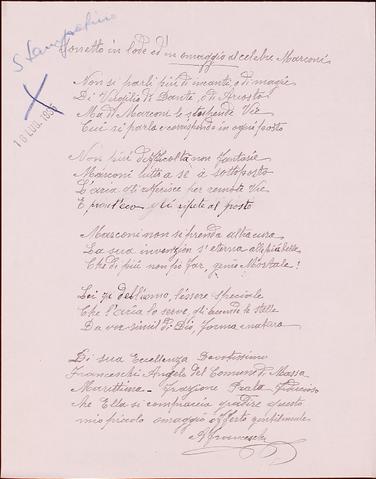 Stampatino
18 LUG. 1935
Sonetto in lode ed in omaggio al celebre Marconi
Non si parli più di incanti, o di magie
Di Virgilio di Dante, o di Ariosto
Ma di Marconi le stupende Vie
Cui si parla e corrisponde in ogni posto
Non più difficoltà non fantasie
Marconi tutto a sé à sottoposto
L'aria gli offerisce per remote Vie
E l'eco gli ripete al posto
Marconi non si prenda altra cura
La sua invenzion s'eterna alle più belle
Che di più non pò far, genio Mortale!
Lei dell'uomo, l'essere speciale
Che l'aria lo serve, le stelle
Da voce simil di Dio, forma e natura
Di sua Eccellenza Devotissimo
Franceschi Angelo del Comune di Massa
Marittima - Frazione Prata -
che Ella si compiaccia gradire questo
mio piccolo omaggio offerto gentilmente
AFranceschi